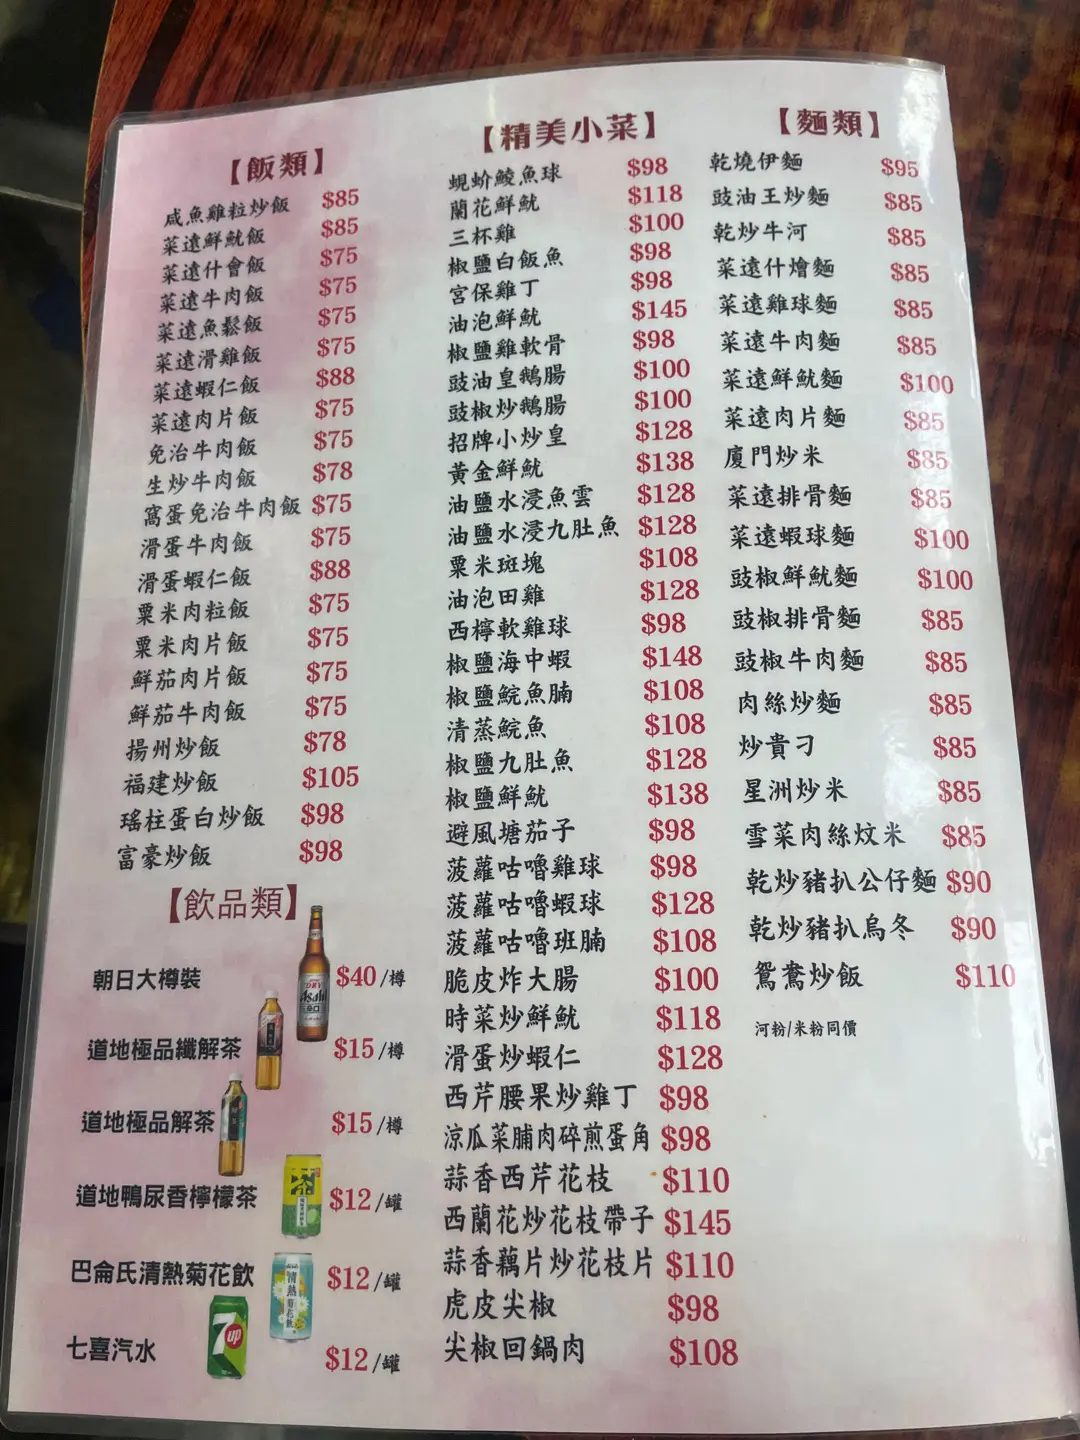 【飯類】
咸魚雞粒炒飯 $85
菜遠鮮魷飯 $85
菜遠什會飯 $75
菜遠牛肉飯 $75
菜遠魚鬆飯 $75
菜遠滑雞飯 $75
菜遠蝦仁飯 $88
菜遠肉片飯 $75
免治牛肉飯 $75
生炒牛肉飯 $78
窩蛋免治牛肉飯 $75
滑蛋牛肉飯 $75
滑蛋蝦仁飯 $88
粟米肉粒飯 $75
粟米肉片飯 $75
鮮茄肉片飯 $75
鮮茄牛肉飯 $75
揚州炒飯 $78
福建炒飯 $105
瑤柱蛋白炒飯 $98
富豪炒飯 $98
【飲品類】
朝日大樽裝 $40/樽
道地極品纖解茶 $15/樽
道地極品解茶 $15/樽
道地鴨尿香檸檬茶 $12/罐
巴侖氏清熱菊花飲 $12/罐
七喜汽水 $12/罐
DRY
Asahi
清熱菊花飲
7up
【精美小菜】
蜆蚧鯪魚球 $98
蘭花鮮魷 $118
三杯雞 $100
椒鹽白飯魚 $98
宮保雞丁 $98
油泡鮮魷 $145
椒鹽雞軟骨 $98
豉油皇鵝腸 $100
豉椒炒鵝腸 $100
招牌小炒皇 $128
黃金鮮魷 $138
油鹽水浸魚雲 $128
油鹽水浸九肚魚 $128
粟米斑塊 $108
油泡田雞 $128
西檸軟雞球 $98
椒鹽海中蝦 $148
椒鹽鯇魚腩 $108
清蒸鯇魚 $108
椒鹽九肚魚 $128
椒鹽鮮魷 $138
避風塘茄子 $98
菠蘿咕嚕雞球 $98
菠蘿咕嚕蝦球 $128
菠蘿咕嚕班腩 $108
脆皮炸大腸 $100
時菜炒鮮魷 $118
滑蛋炒蝦仁 $128
西芹腰果炒雞丁 $98
涼瓜菜脯肉碎煎蛋角 $98
蒜香西芹花枝 $110
西蘭花炒花枝帶子 $145
蒜香藕片炒花枝片 $110
虎皮尖椒 $98
尖椒回鍋肉 $108
【麵類】
乾燒伊麵 $95
豉油王炒麵 $85
乾炒牛河 $85
菜遠什燴麵 $85
菜遠雞球麵 $85
菜遠牛肉麵 $85
菜遠鮮魷麵 $100
菜遠肉片麵 $85
廈門炒米 $85
菜遠排骨麵 $85
菜遠蝦球麵 $100
豉椒鮮魷麵 $100
豉椒排骨麵 $85
豉椒牛肉麵 $85
肉絲炒麵 $85
炒貴刁 $85
星洲炒米 $85
雪菜肉絲炆米 $85
乾炒豬扒公仔麵 $90
乾炒豬扒烏冬 $90
鴛鴦炒飯 $110
河粉/米粉同價